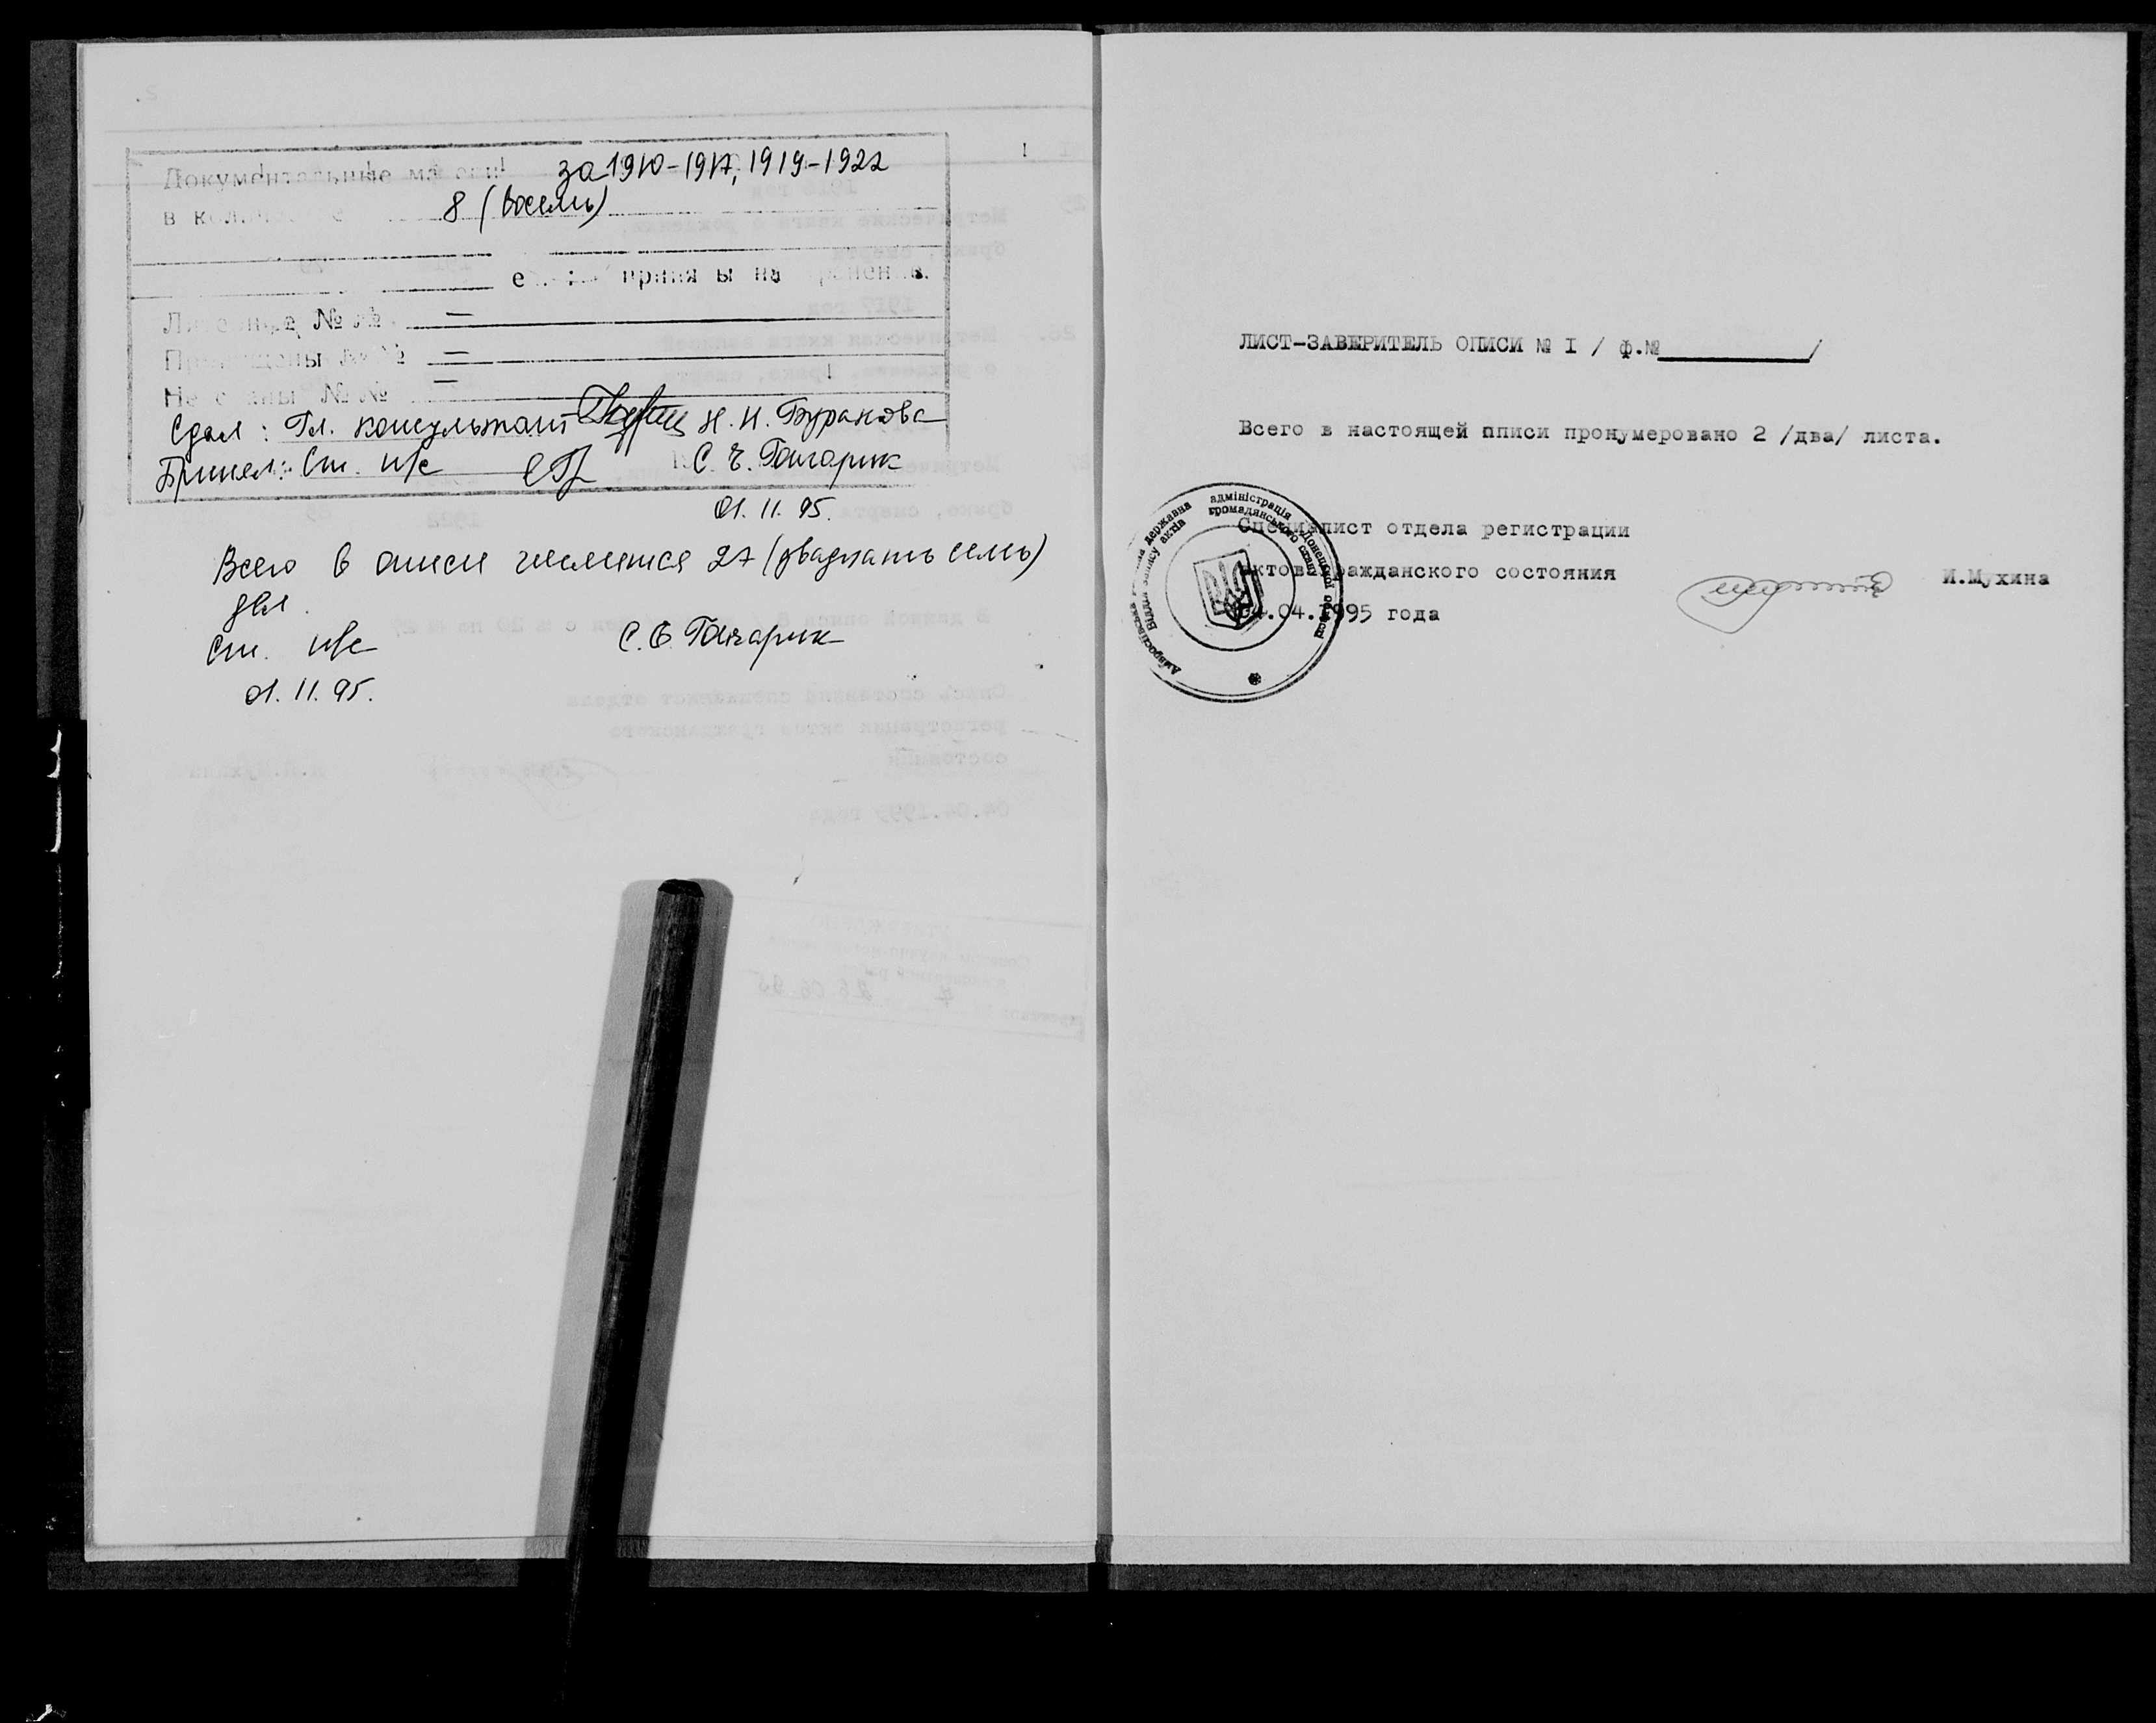 Документальные за 1910-1917, 1919-1922
в количестве 8 (восемь)
приняты на хранение.
№ №. —
№ № —
№ № —
Сдал: Гл. консультант Н. Н. Буракова
Принял: Ст. н/с С. Гончарик
01.11.95.
Всего в описи числится 27 (двадцать семь)
дел.
Ст. н/с С. Гончарик
01.11.95.
ЛИСТ-ЗАВЕРИТЕЛЬ ОПИСИ № I / ф.№ /
Всего в настоящей описи пронумеровано 2 /два/ листа.
Специалист отдела регистрации
актов гражданского состояния И.Мухина
04.04.1995 года
державна адміністрація Донецької області
Відділ запису актів громадянського стану